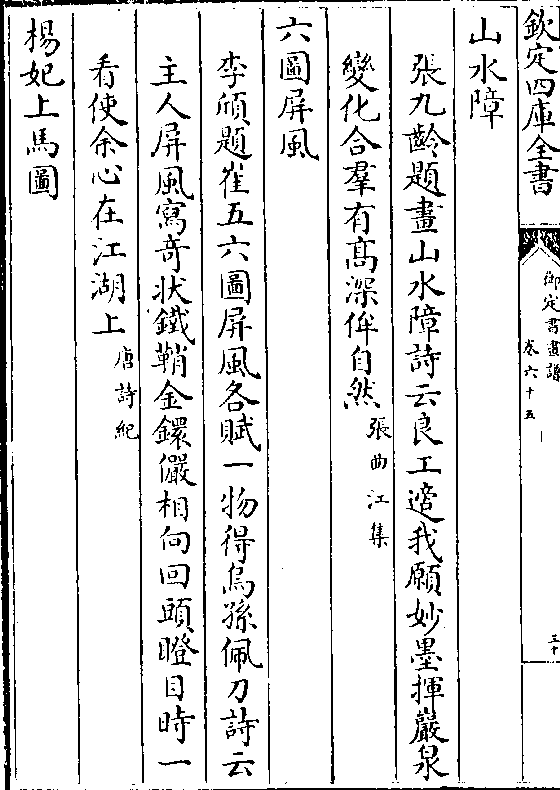 欽定四庫全書
御定書畫譜
卷六十五
三十
山水障
張九齡題畫山水障詩云良工適我願妙墨揮巖泉
變化合羣有髙深侔自然張曲江集
六圖屏風
李頎題崔五六圖屏風各賦一物得烏孫佩刀詩云
主人屏風寫竒狀鐵鞘金鐶儼相向回頭瞪目時一
看使余心在江湖上唐詩紀
楊妃上馬圖